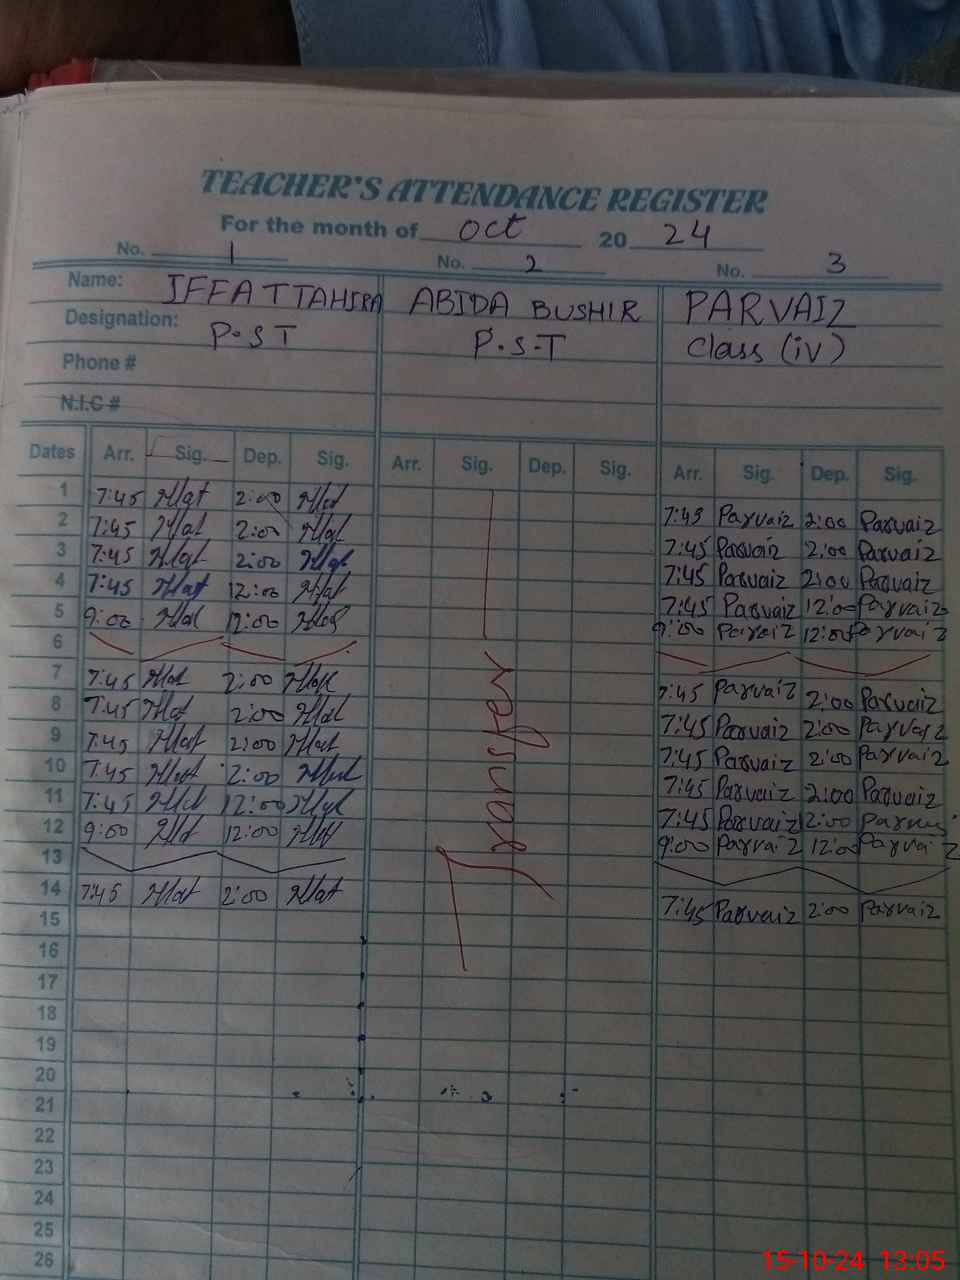 TEACHER'S ATTENDANCE REGISTER
For the month of Oct 20 24
No. 1 No. 2 No. 3
Name: IFFAT TAHIRA ABIDA BUSHIR PARVAIZ
Designation: P.ST P.S.T Class (iv)
Phone #
N.I.C #
Dates Arr. Sig. Dep. Sig. Arr. Sig. Dep. Sig. Arr. Sig. Dep. Sig.
1 7:45 2:00 7:45 Parvaiz 2:00 Parvaiz
2 7:45 2:00 7:45 Parvaiz 2:00 Parvaiz
3 7:45 2:00 7:45 Parvaiz 2:00 Parvaiz
4 7:45 12:00 7:45 Parvaiz 12:00 Parvaiz
5 9:00 12:00 9:00 Parvaiz 12:00 Parvaiz
6
7 7:45 2:00 7:45 Parvaiz 2:00 Parvaiz
8 7:45 2:00 7:45 Parvaiz 2:00 Parvaiz
9 7:45 2:00 7:45 Parvaiz 2:00 Parvaiz
10 7:45 2:00 7:45 Parvaiz 2:00 Parvaiz
11 7:45 12:00 7:45 Parvaiz 12:00 Parvaiz
12 9:00 12:00 9:00 Parvaiz 12:00 Parvaiz
13
14 7:45 2:00 7:45 Parvaiz 2:00 Parvaiz
Transfer
15
16
17
18
19
20
21
22
23
24
25
26
15-10-24 13:05